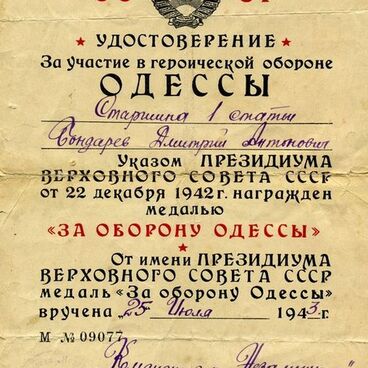 ★ УДОСТОВЕРЕНИЕ ★
За участие в героической обороне
ОДЕССЫ
Старшина 1 статьи
Бондарев Дмитрий Антонович
Указом ПРЕЗИДИУМА
ВЕРХОВНОГО СОВЕТА СССР
от 22 декабря 1942 г. награжден
медалью
«ЗА ОБОРОНУ ОДЕССЫ»
★
От имени ПРЕЗИДИУМА
ВЕРХОВНОГО СОВЕТА СССР
медаль «За оборону Одессы»
вручена „25" Июля 1943 г.
М № 09077